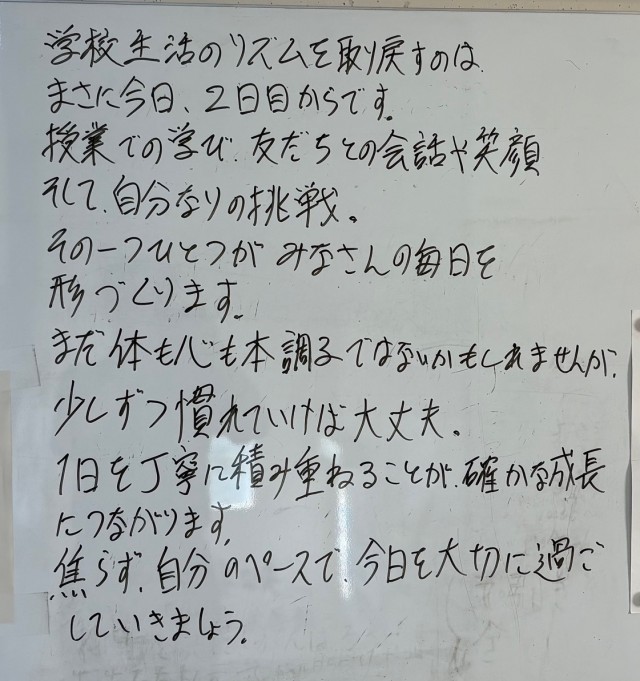 学校生活のリズムを取り戻すのは
まさに今日、2日目からです。
授業での学び、友だちとの会話や笑顔
そして、自分なりの挑戦。
その一つひとつが みなさんの毎日を
形づくります。
まだ体も心も本調子ではないかもしれませんが、
少しずつ慣れていけば大丈夫。
1日を丁寧に積み重ねることが、確かな成長
につながります。
焦らず、自分のペースで、今日を大切に過ご
していきましょう。